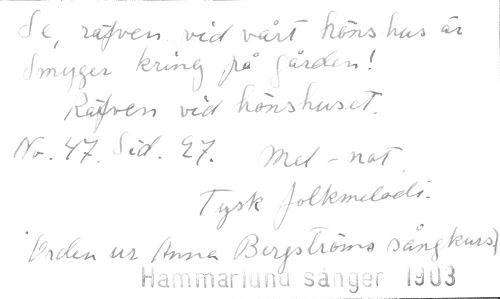 Se, räfven vid vårt hönshus är
smyger kring på gården!
Räfven vid hönshuset.
No. 47. Sid. 27. Mel-not.
Tysk folkmelodi.
(Orden ur Anna Bergströms sångkurs)
Hammarlund sånger 1903